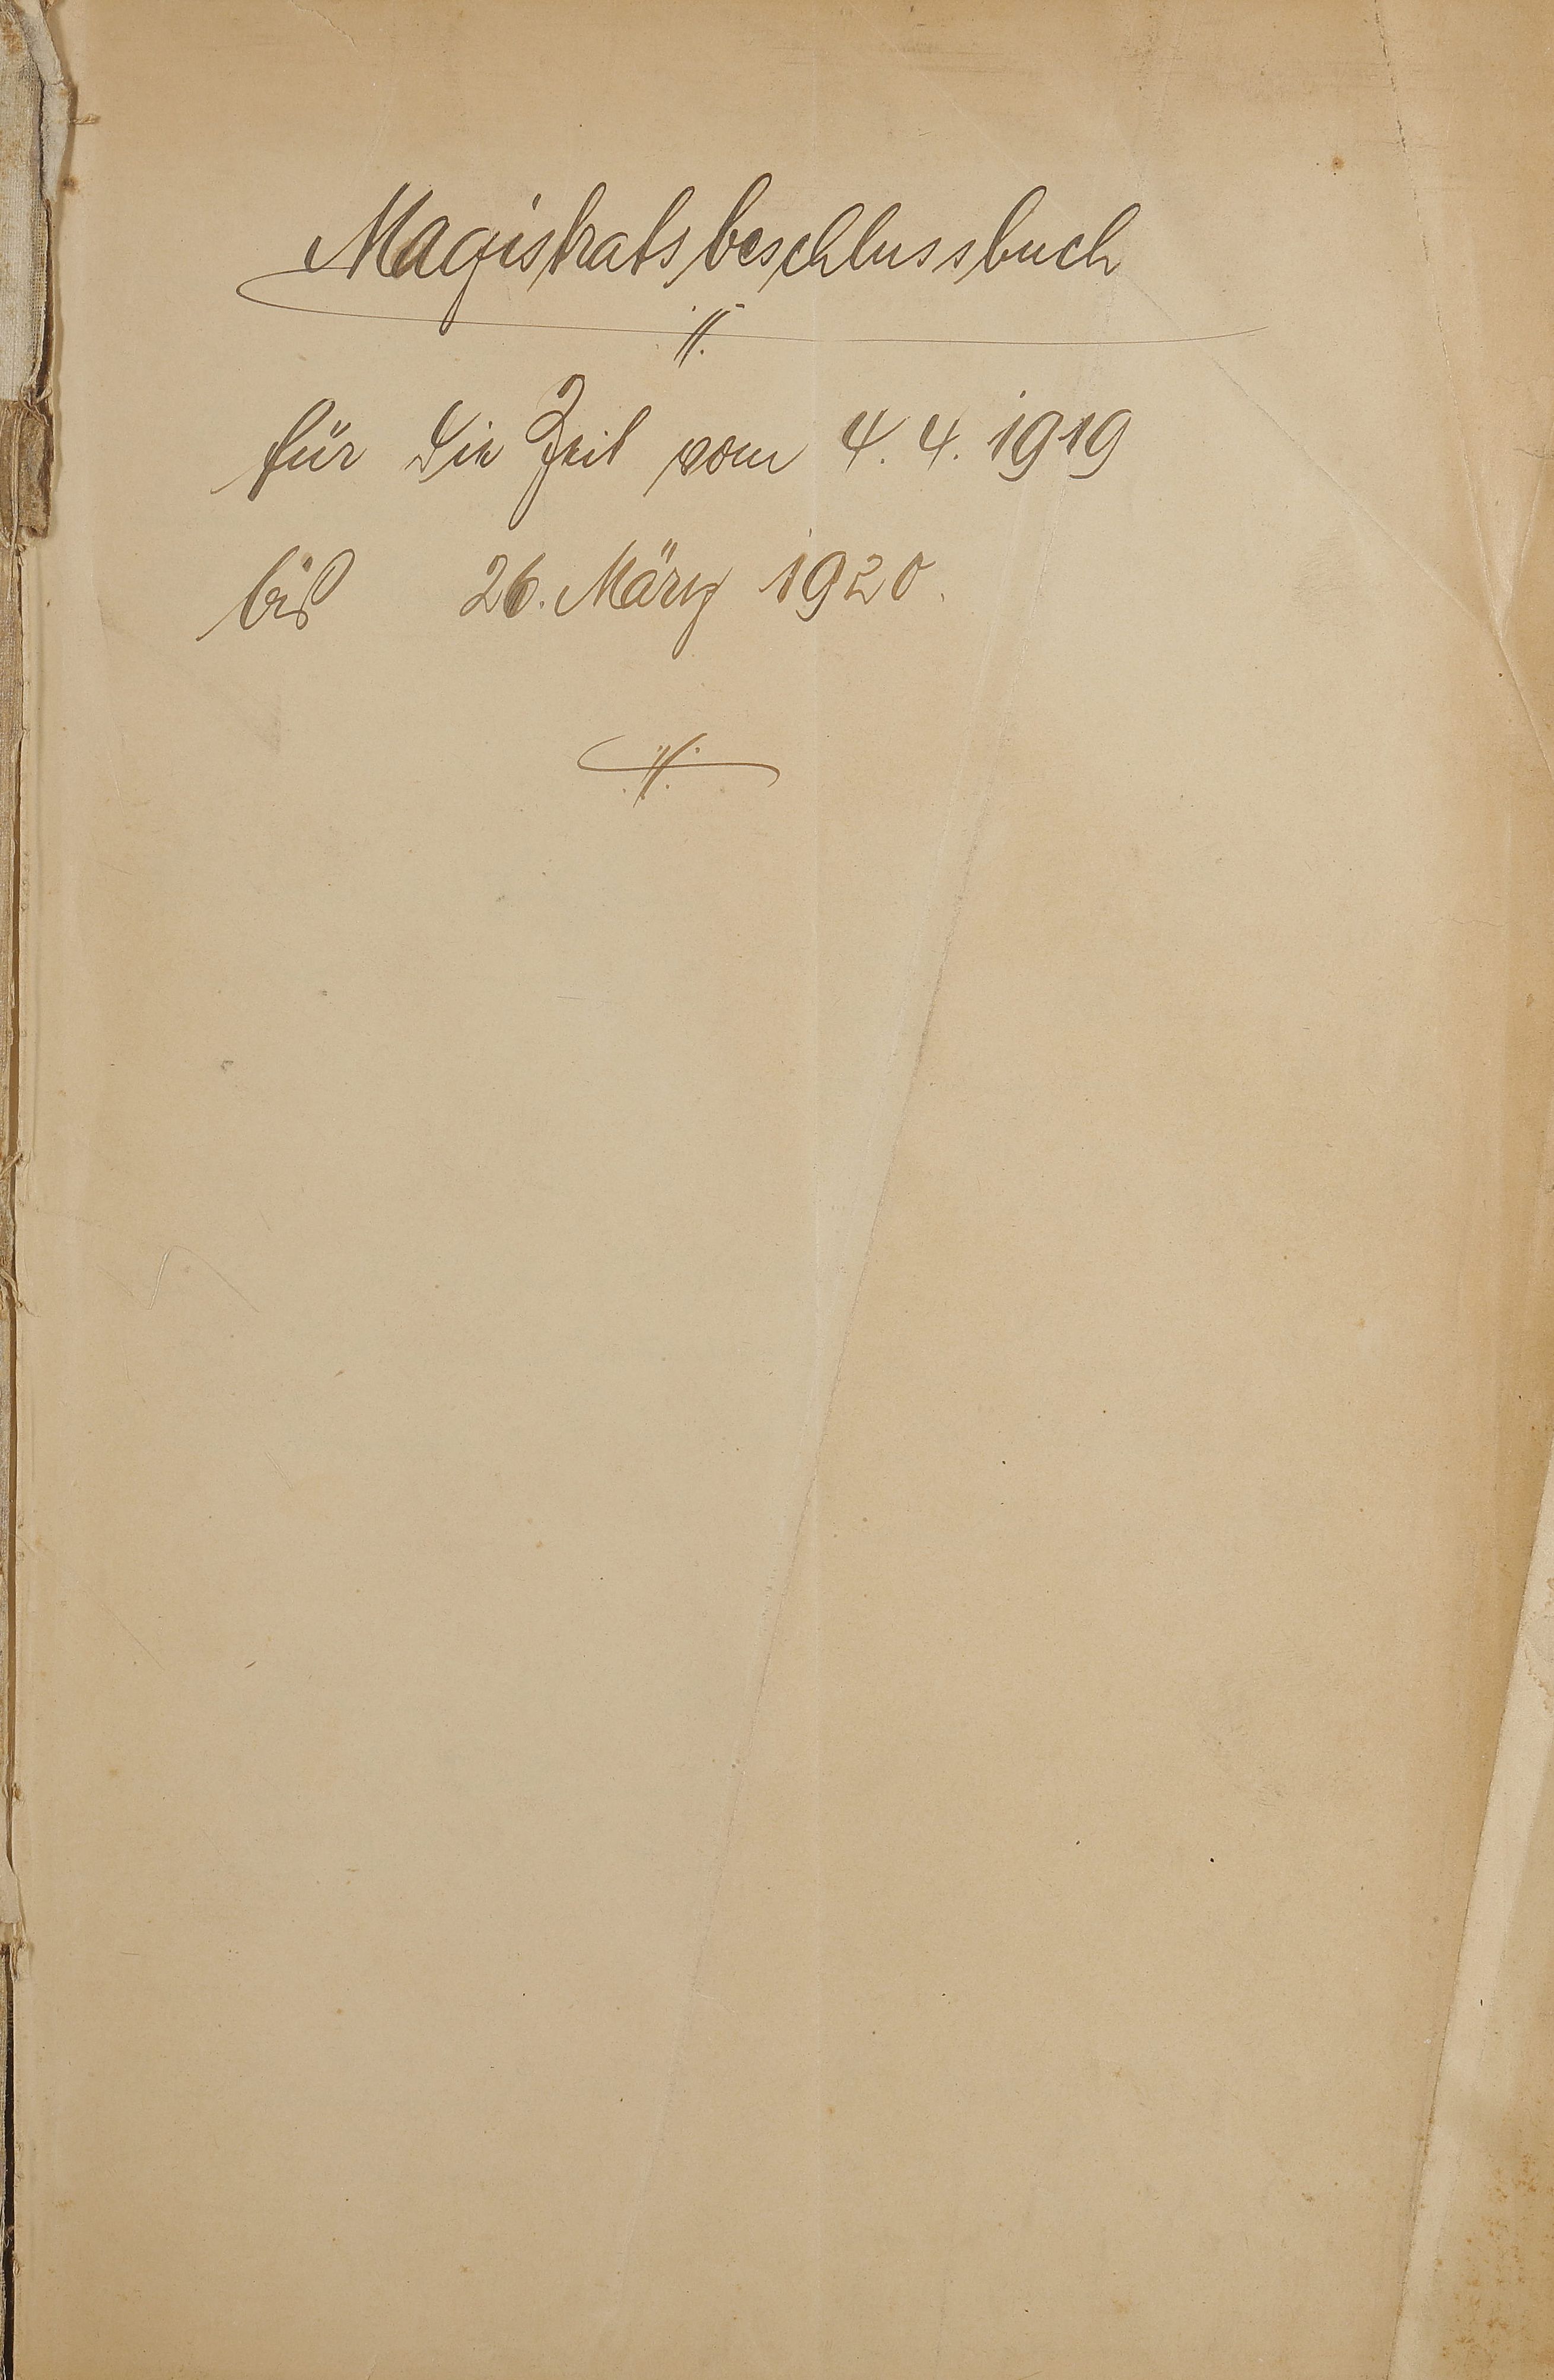 Magistratsbeschlussbuch
für die Zeit vom 4. 4. 1919
bis 26. März 1920.